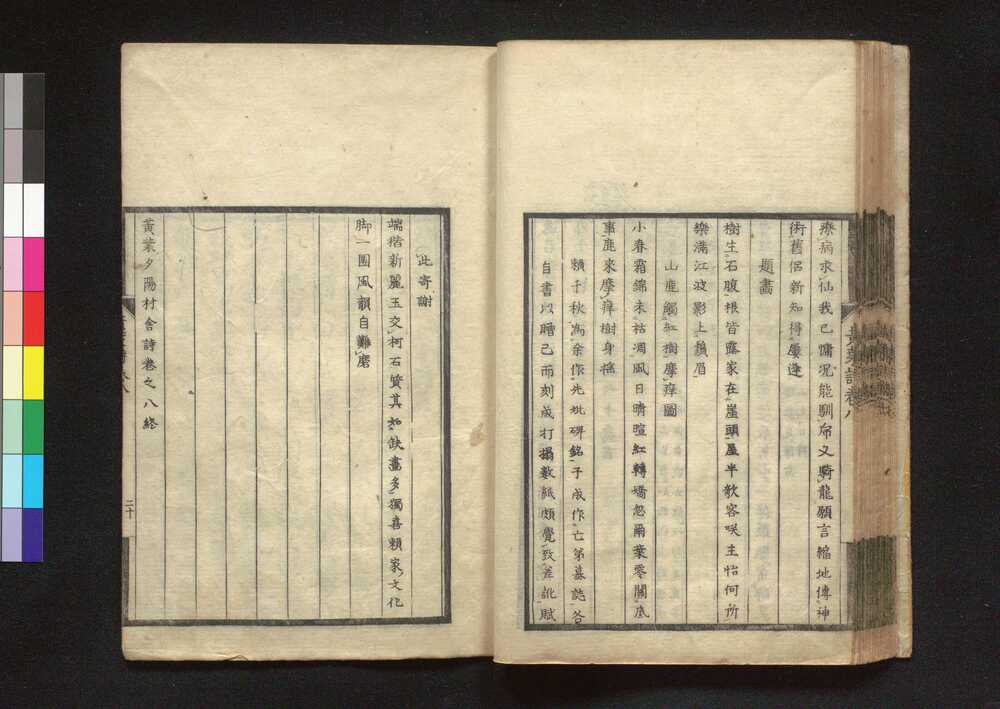 療病求仙我已慵況能馴帝又騎龍願言縮地傳神
術舊侶新知得屢逢
題畫
樹生石腹根皆露家在崖頭屋半欹客咲主怡何所
樂滿江波影上鬚眉
山鹿觸紅樹摩痒圖
小春霜錦未枯凋風日晴暄紅轉嬌忽爾葉零關底
事鹿来摩痒樹身搖
賴千秋為余作先妣碑銘子成作亡弟墓誌各
自書以贈己而刻成打搨數紙頗覺致差訛賦
黃葉詩卷八
此寄謝
端揩新麗玉交柯石質其如缺畫多獨喜賴家文化
脚一團風韻自難磨
黃葉夕陽村舍詩卷之八終
二十